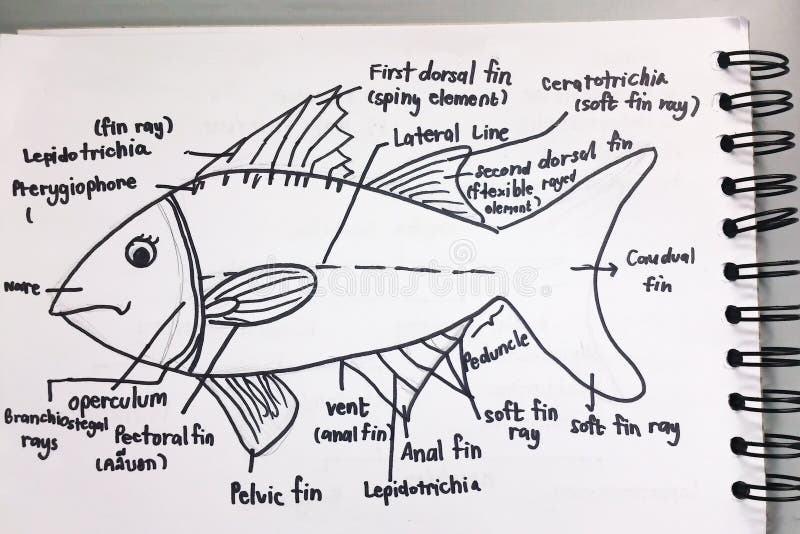 First dorsal fin
(spiny element)
Ceratotrichia
(soft fin ray)
(fin ray)
Lepidotrichia
Lateral Line
second dorsal fin
(flexible rayed
element)
Pterygiophore
(
Nare
Caudual
fin
Peduncle
Branchiostegal
rays
operculum
Pectoral fin
(คลีบอก)
vent
(anal fin)
soft fin
ray
soft fin ray
Anal fin
Pelvic fin
Lepidotrichia
dreamstime